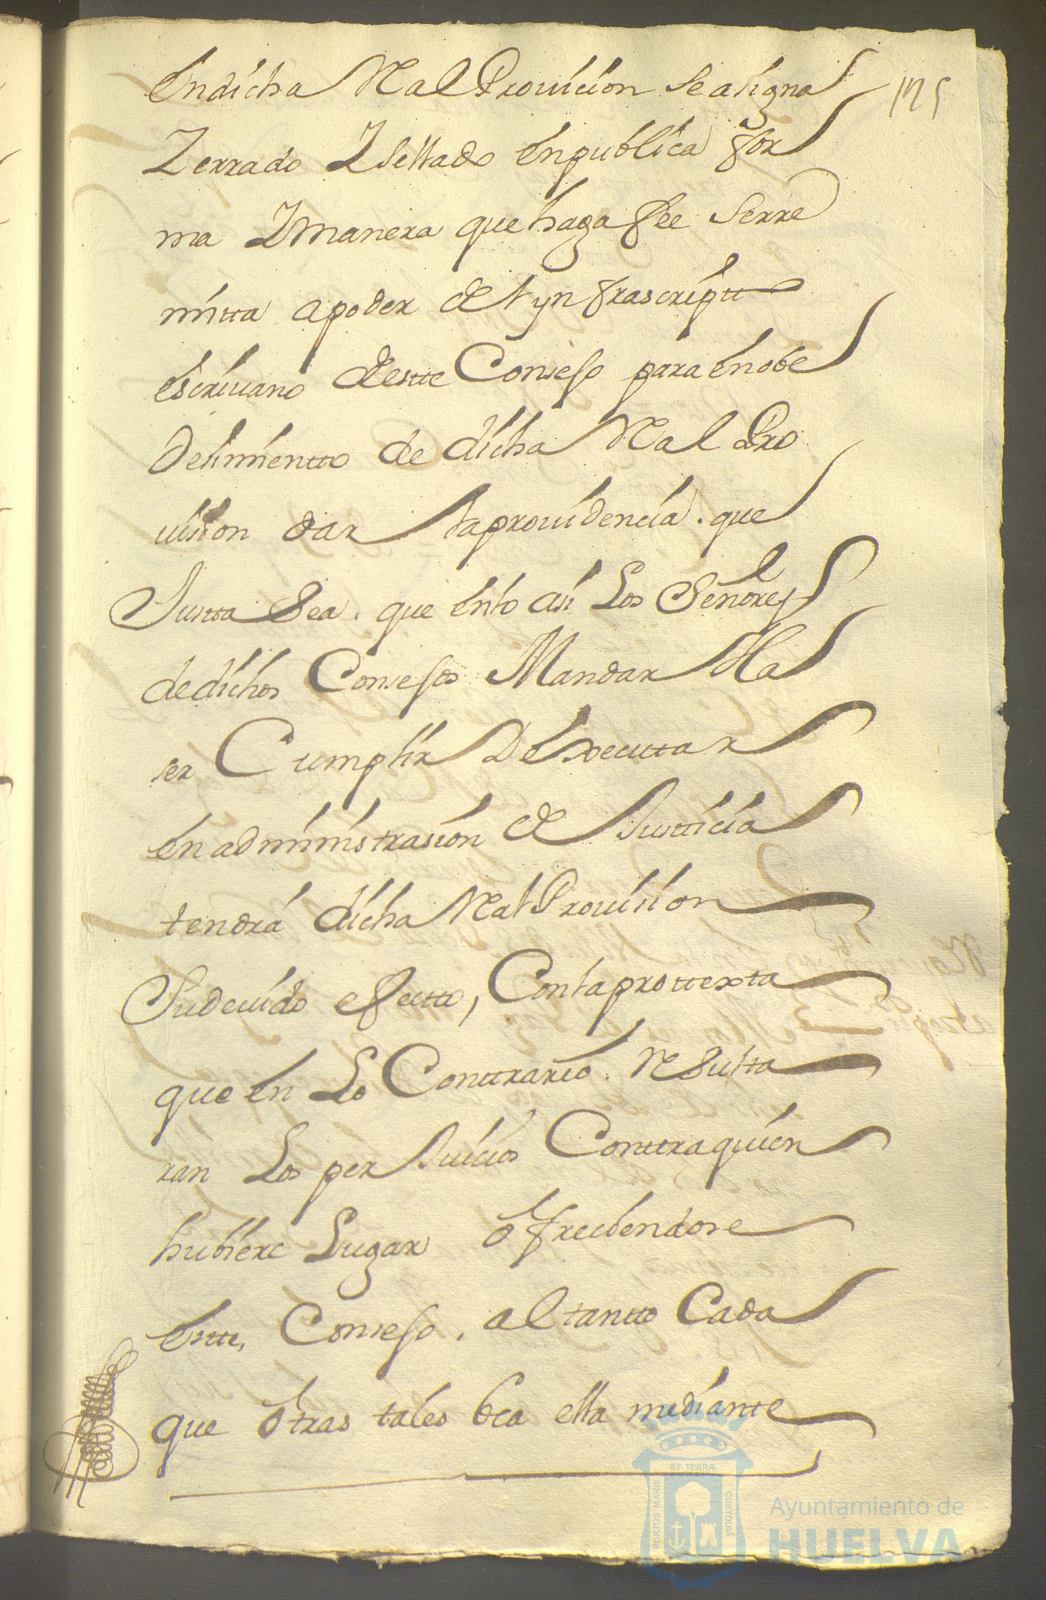 125
En dicha Real Provision se a signa
Zerrado Y sellado En publica for
ma Y manera que haga fee se rre
mitta a poder del ynfrascriptto
escrivano destte Consejo para En obe
desimientto de dicha Real Pro
vision dar la providencia. que
Justta Sea. que En lo asi Los Señores
de dichos Consejos Mandar Ha
ser Cumplir Y Executar
En administrasion de Justticia
tendrá dicha Real Provision
Su devido efectto, Con la prottexta
que En Lo Conttrario. Resulta
ran Los perjuicios Conttra quien
hubiere Lugar ofreciendose
Estte, Consejo, al tantto Cada
que otras tales Vea ella mediante
PORTUS MARIS ET TERRÆ CUSTODIA
Ayuntamiento de
HUELVA